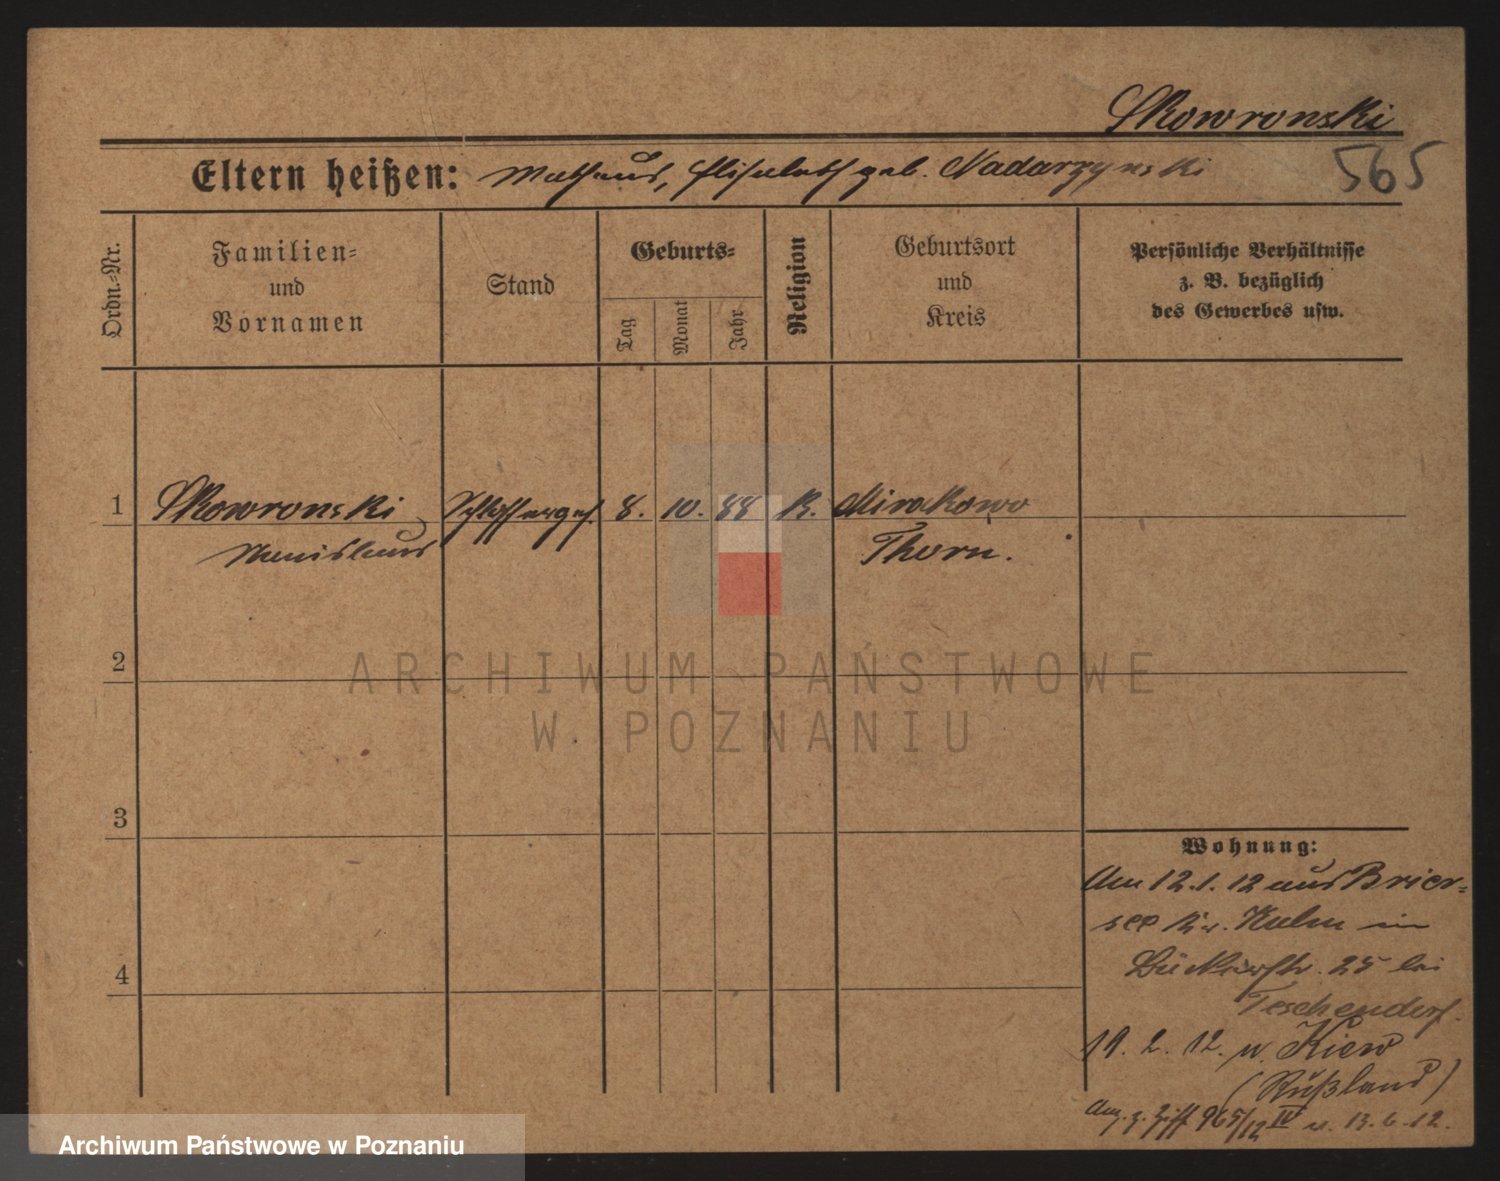 Skowronski
565
Eltern heißen: Mathaus, Elisabeth geb. Nadarzynski
Ordn.-Nr.
Familien-
und
Vornamen
Stand
Geburts-
Tag
Monat
Jahr
Religion
Geburtsort
und
Kreis
Persönliche Verhältnisse
z. B. bezüglich
des Gewerbes usw.
1
Skowronski Schlosserges. 8. 10. 88 K. Mirakowo
Stanislaus Thorn.
2
ARCHIWUM PAŃSTWOWE
W POZNANIU
3
Wohnung:
Am 12.1.12 aus Brier-
see Kr. Kulm in
Bückerstr. 25 bei
Teschendorf.
19. 2. 12. n. Kiew
(Rußland)
4
Anz. z. Ziff 965/12 IV v. 13.6.12.
Archiwum Państwowe w Poznaniu